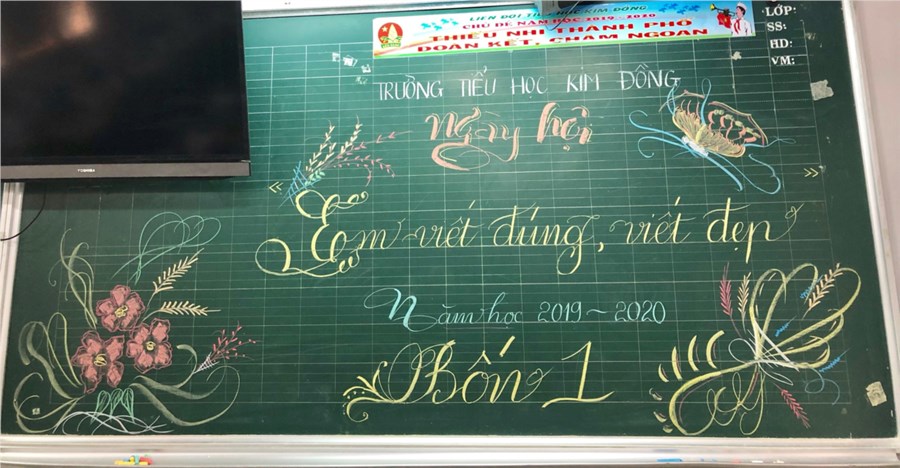 LIÊN ĐỘI TIỂU HỌC KIM ĐỒNG
CHỦ ĐỀ NĂM HỌC 2019 - 2020
THIẾU NHI THÀNH PHỐ
ĐOÀN KẾT, CHĂM NGOAN
LỚP:
SS:
HD:
VM:
TRƯỜNG TIỂU HỌC KIM ĐỒNG
Ngày hội
« »
Em viết đúng, viết đẹp
Năm học 2019 ~ 2020
Bốn 1
TOSHIBA